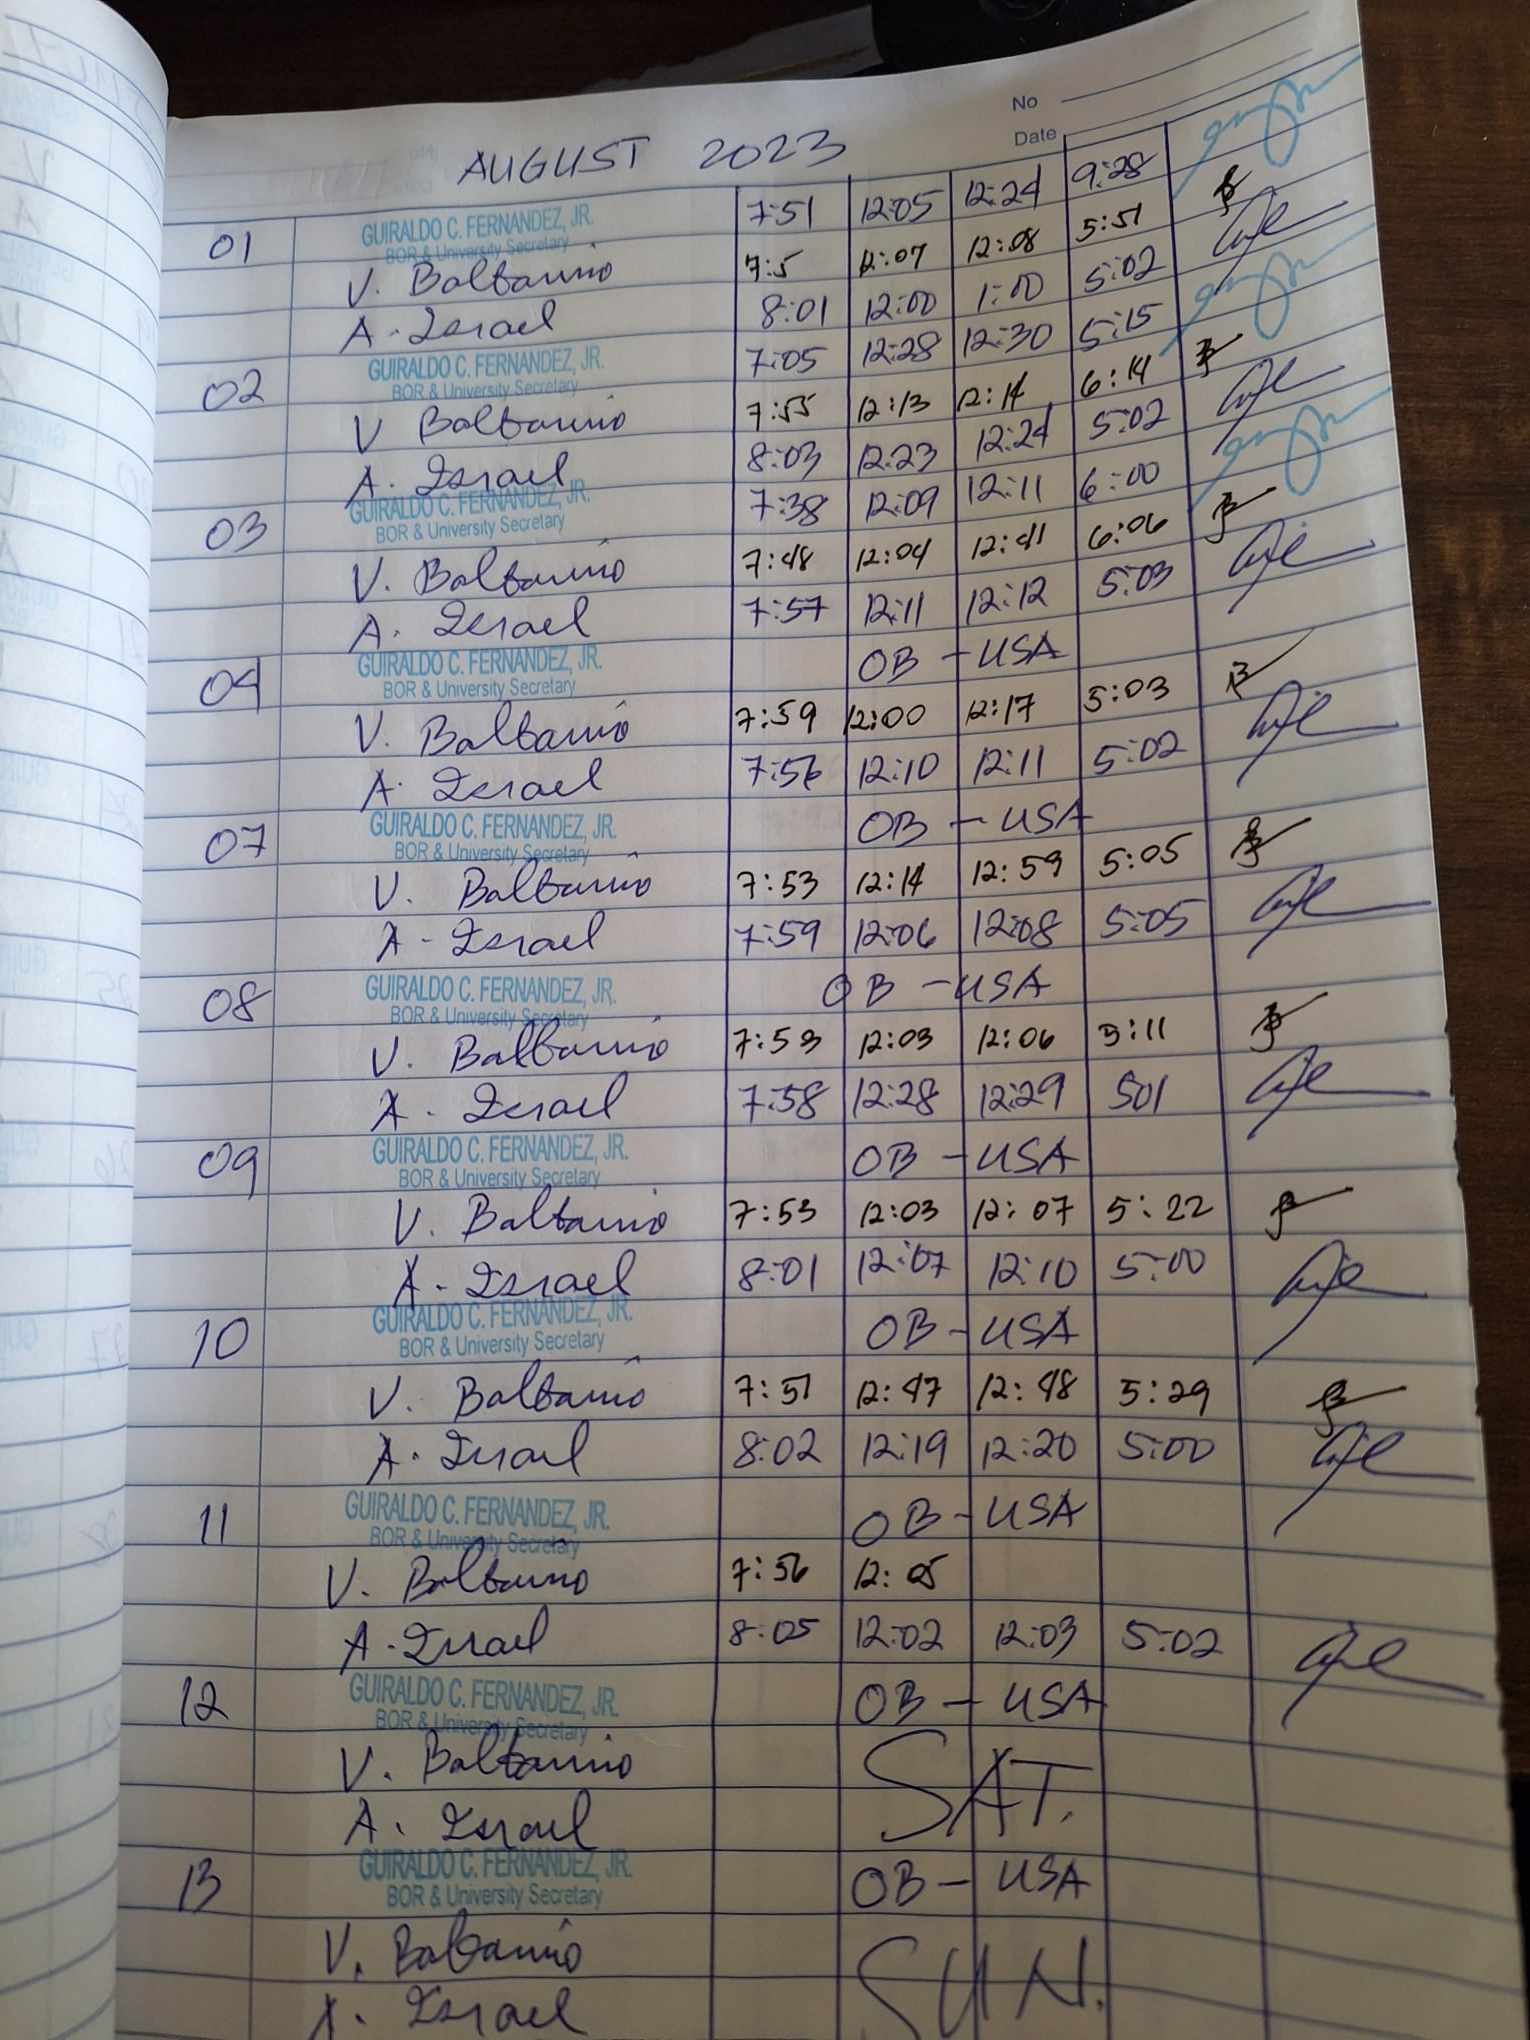 No
Date
AUGUST 2023
01 GUIRALDO C. FERNANDEZ, JR. 7:51 12:05 12:24 9:28
BOR & University Secretary
V. Baltarino 7:5 12:07 12:08 5:51
A. Israel 8:01 12:00 1:00 5:02
02 GUIRALDO C. FERNANDEZ, JR. 7:05 12:28 12:30 5:15
BOR & University Secretary
V Baltarino 7:55 12:13 12:14 6:14
A. Israel 8:03 12:23 12:24 5:02
03 GUIRALDO C. FERNANDEZ, JR. 7:38 12:09 12:11 6:00
BOR & University Secretary
V. Baltarino 7:48 12:04 12:41 6:06
A. Israel 7:57 12:11 12:12 5:03
04 GUIRALDO C. FERNANDEZ, JR. OB - USA
BOR & University Secretary
V. Baltarino 7:59 12:00 12:17 5:03
A. Israel 7:56 12:10 12:11 5:02
07 GUIRALDO C. FERNANDEZ, JR. OB - USA
BOR & University Secretary
V. Baltarino 7:53 12:14 12:59 5:05
A - Israel 7:59 12:06 12:08 5:05
08 GUIRALDO C. FERNANDEZ, JR. OB - USA
BOR & University Secretary
V. Baltarino 7:53 12:03 12:06 5:11
A. Israel 7:58 12:28 12:29 501
09 GUIRALDO C. FERNANDEZ, JR. OB - USA
BOR & University Secretary
V. Baltarino 7:53 12:03 12:07 5:22
A - Israel 8:01 12:07 12:10 5:00
10 GUIRALDO C. FERNANDEZ, JR. OB - USA
BOR & University Secretary
V. Baltarino 7:51 12:47 12:48 5:29
A. Israel 8:02 12:19 12:20 5:00
11 GUIRALDO C. FERNANDEZ, JR. OB - USA
BOR & University Secretary
V. Baltarino 7:56 12:05
A. Israel 8:05 12:02 12:03 5:02
12 GUIRALDO C. FERNANDEZ, JR. OB - USA
BOR & University Secretary
V. Baltarino SAT.
A. Israel
13 GUIRALDO C. FERNANDEZ, JR. OB - USA
BOR & University Secretary
V. Baltarino SUN.
A. Israel